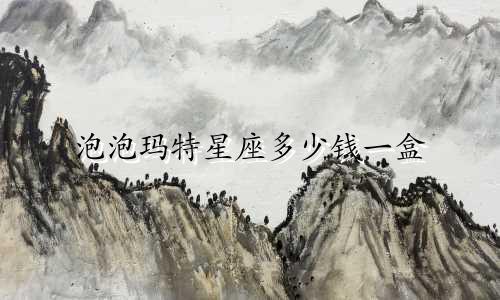 泡泡玛特星座多少钱一盒